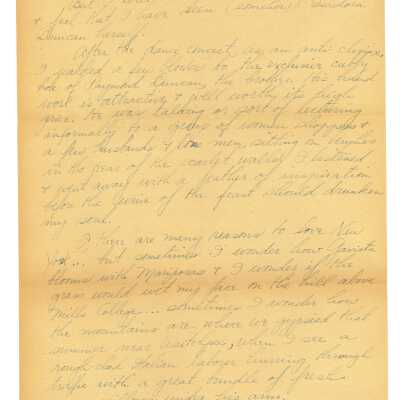 But I
& feel that I have seen (somehow) Isadora
Duncan
After the dance concert, as an anti-climax,
I walked a few blocks to the exclusive cubby
hole of Raymond Duncan, the brother. His hand
work is attractive & well worthy its high
price. He was talking or sort of lecturing
informally to a group of women shoppers &
a few husbands & lone men, sitting on benches
in the rear of the walled I listened
& went away with a feather of inspiration
the of the feast should drunken
my soul.
There are many reasons to love New
York... but sometimes I wonder how
blooms with Mariposas & I wonder if the
grass would wet my face on the hill above
Mills College.... sometimes I wonder how
the mountains are where we gypsied that
summer was waitress, when I see a
rough clad Italian labor running through
with a great bundle of fresh
under his arm.